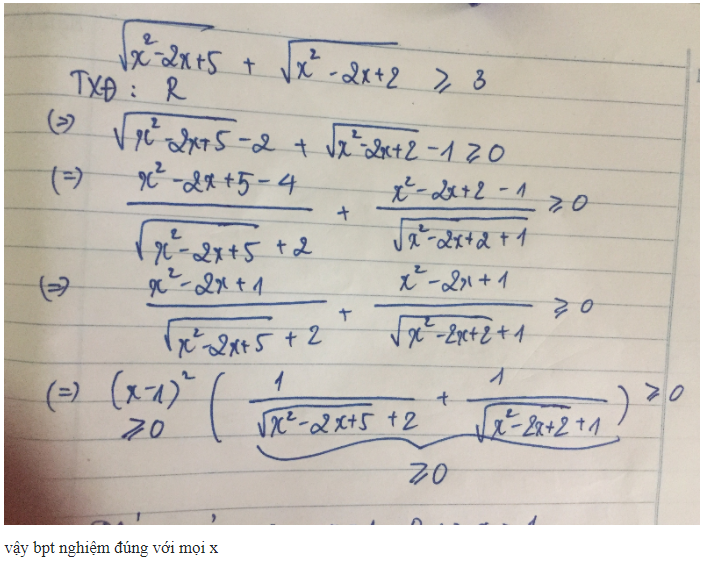 √(x²-2x+5) + √(x²-2x+2) ≥ 3
TXĐ : R
(=) √(x²-2x+5) - 2 + √(x²-2x+2) - 1 ≥ 0
(=) (x²-2x+5-4)/(√(x²-2x+5) + 2) + (x²-2x+2-1)/(√(x²-2x+2+1)) ≥ 0
(=) (x²-2x+1)/(√(x²-2x+5) + 2) + (x²-2x+1)/(√(x²-2x+2) + 1) ≥ 0
(=) (x-1)² ( 1/(√(x²-2x+5) + 2) + 1/(√(x²-2x+2) + 1) ) ≥ 0
≥0 ≥0
vậy bpt nghiệm đúng với mọi x